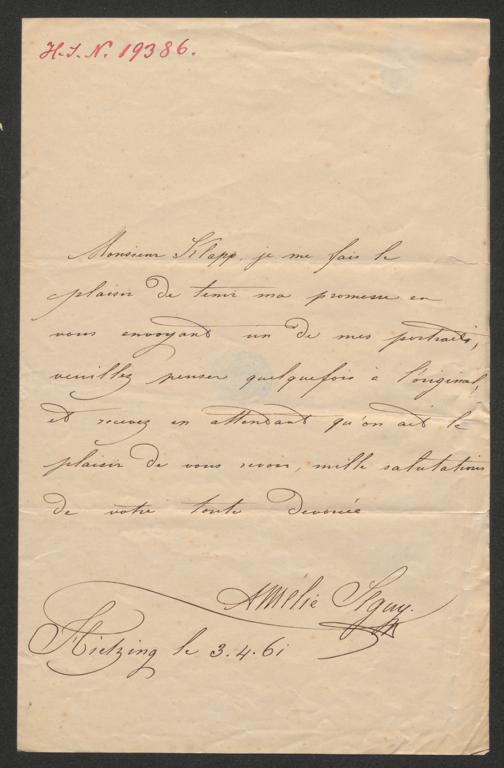 H.I.N. 19386.
Monsieur Klapp, je me fais le
plaisir de tenir ma promesse en
vous envoyant un de mes portraits,
veuillez penser quelquefois à l'original,
et recevez en attendant qu'on ait le
plaisir de vous revoir, mille salutations
de votre toute devouée
Amélie
Hietzing le 3.4.61